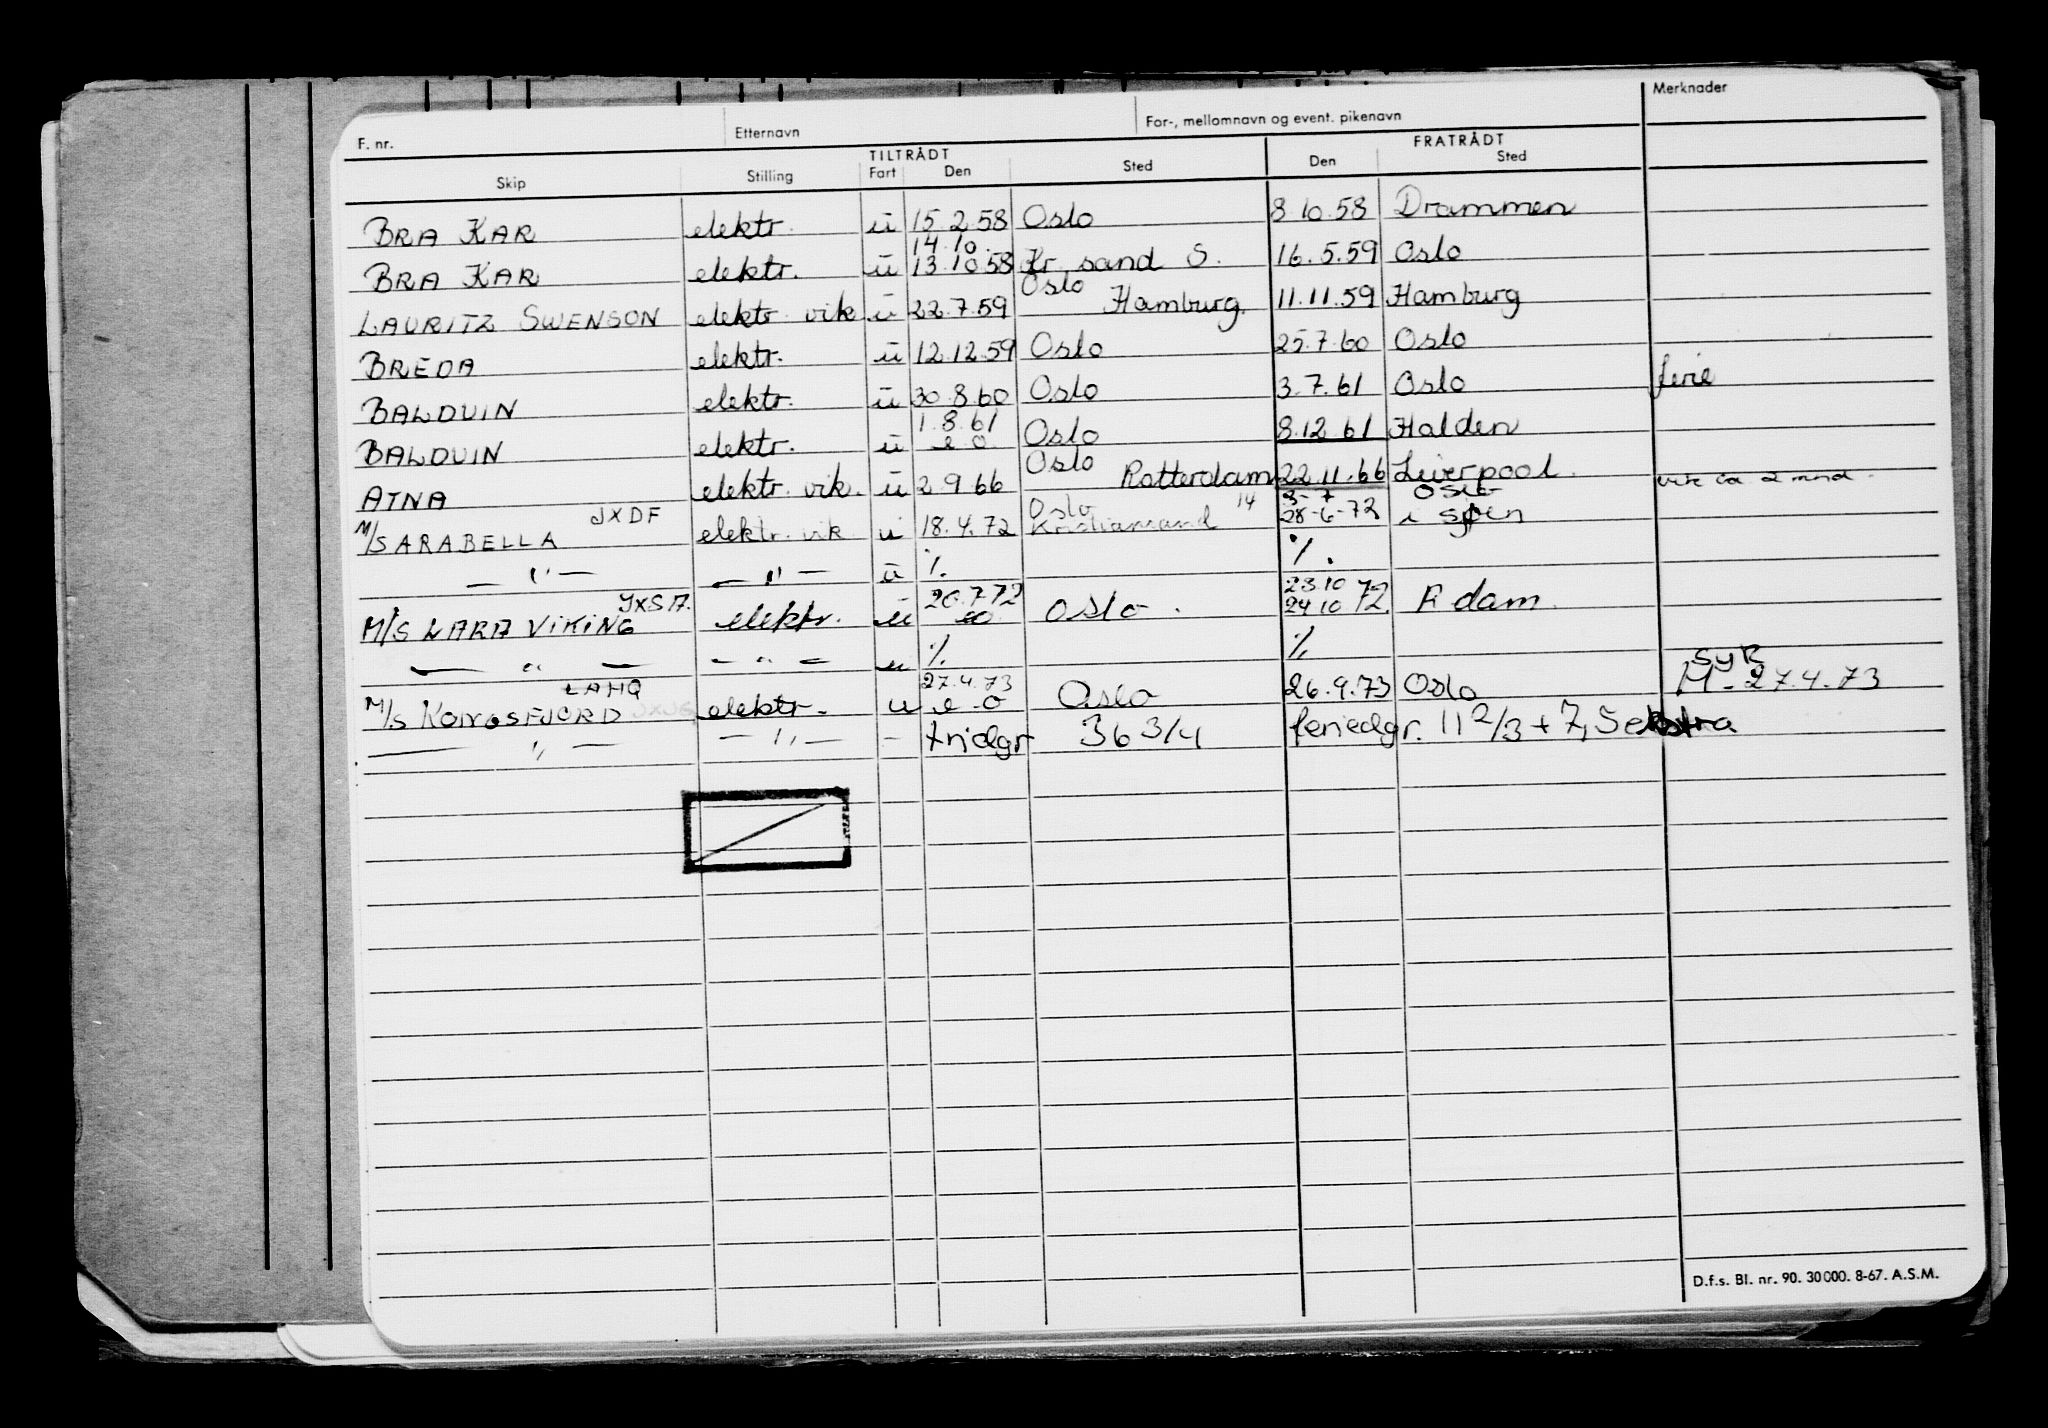 Merknader
F. nr. Etternavn For-, mellomnavn og event. pikenavn
TILTRÅDT FRATRÅDT
Skip Stilling Fart Den Sted Den Sted
BRA KAR elektr. u 15.2.58 Oslo 8.10.58 Drammen
14.10.
BRA KAR elektr. u 13.10.58 Kr. sand S. 16.5.59 Oslo
Oslo
LAURITZ SWENSON elektr. vik u 22.7.59 Hamburg. 11.11.59 Hamburg
BREDA elektr. u 12.12.59 Oslo 25.7.60 Oslo
BALDUIN elektr. u 30.8.60 Oslo 3.7.61 Oslo ferie
1.8.61
BALDUIN elektr. u e o Oslo 8.12.61 Halden
Oslo
ATNA elektr. vik. u 2.9.66 Rotterdam 22.11.66 Liverpool. vik ca 2 mnd.
JXDF Oslo 14 8-7 Oslo
M/S ARABELLA elektr. vik u 18.4.72 Kristiansand 28-6-72 i sjøen
— " — — " — u %. %.
JXSA. 20.7.72 23.10
M/S LARA VIKING elektr. u eo Oslo. 24.10 72. A dam.
— " — — " — u % %
LAHQ 27.4.73 SYK
M/S KONGSFJORD elektr. u e o Oslo 26.9.73 Oslo M- 27.4.73
— " — — " — - fridgr 36 3/4 feriedgr. 11 2/3 + 7,5 ekstra
D.f.s. Bl. nr. 90. 30000. 8-67. A.S.M.